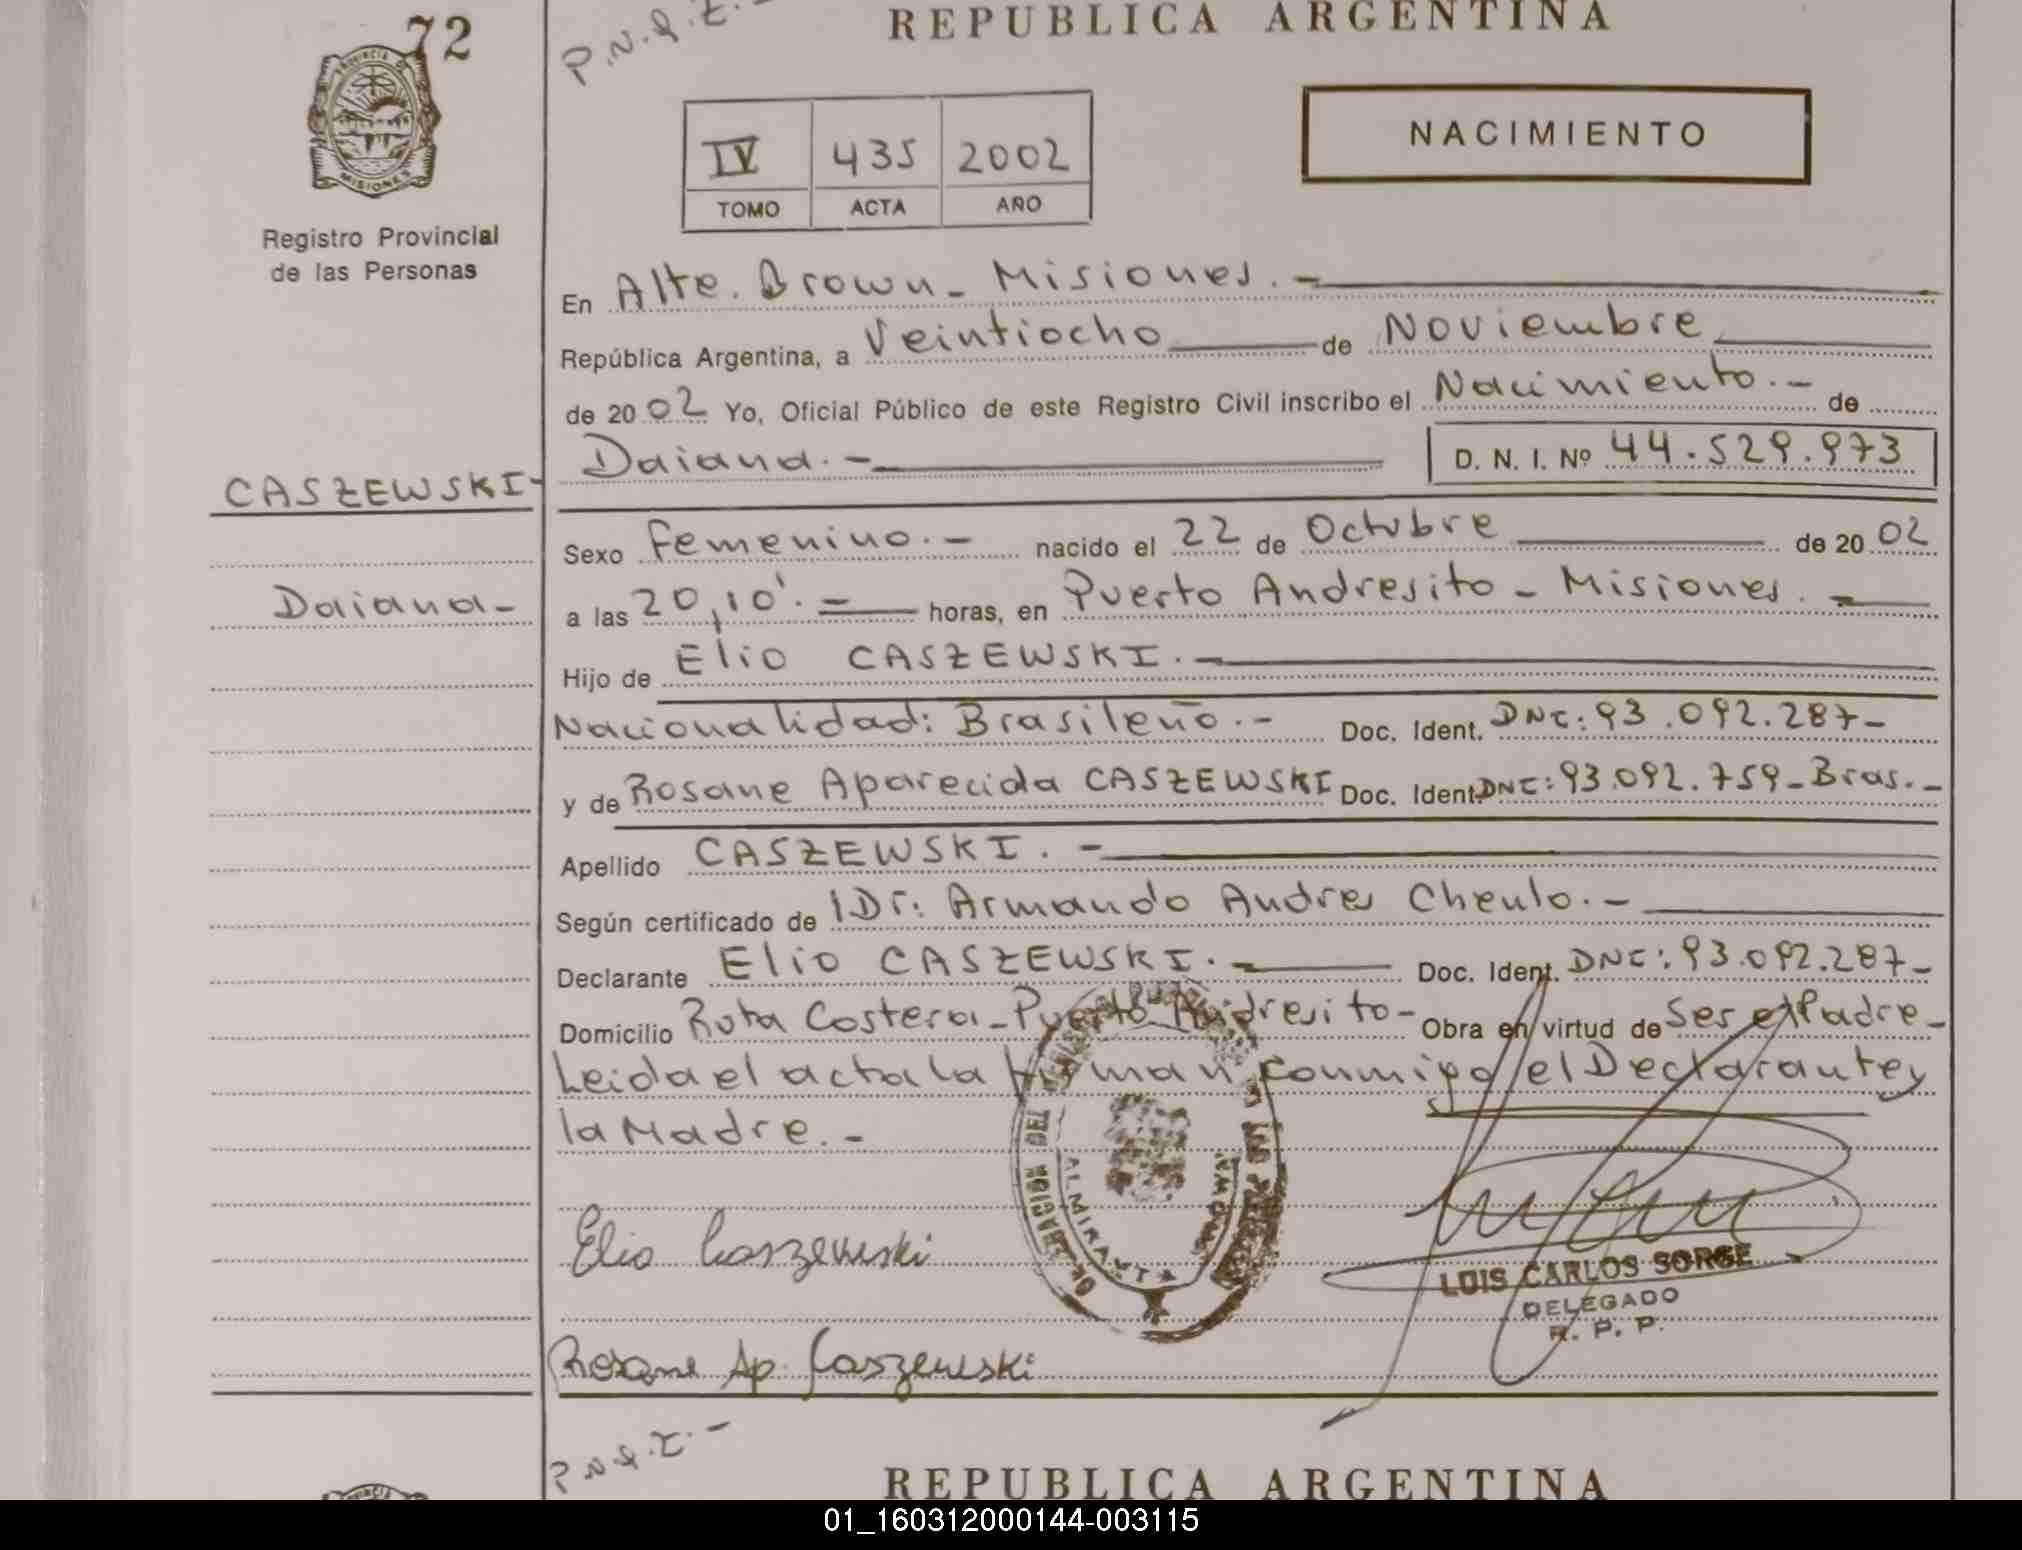 72
P.N.Q.I.-
REPUBLICA ARGENTINA
PROVINCIA DE MISIONES
Registro Provincial
de las Personas
IV 435 2002
TOMO ACTA AÑO
NACIMIENTO
En Alte. Brown - Misiones.-
República Argentina, a Veintiocho de Noviembre
de 2002 Yo, Oficial Público de este Registro Civil inscribo el Nacimiento.- de
Daiana.- D. N. I. Nº 44.529.973
CASZEWSKI-
Sexo Femenino.- nacido el 22 de Octubre de 2002
Daiana-
a las 20,10'.- horas, en Puerto Andresito - Misiones.-
Hijo de Elio CASZEWSKI.-
Nacionalidad: Brasileño.- Doc. Ident. DNI: 93.092.287-
y de Rosane Aparecida CASZEWSKI Doc. Ident. DNI: 93.092.759-Bras.-
Apellido CASZEWSKI.-
Según certificado de Dr: Armando Andres .-
Declarante Elio CASZEWSKI.- Doc. Ident. DNI: 93.092.287-
Domicilio Ruta Costera - Puerto Andresito- Obra en virtud de Ser el Padre-
Leida el acta la firman conmigo el Declarante y
la Madre.-
ALMIRANTE BROWN
Elio Caszewski
LUIS CARLOS SORGE
DELEGADO
R. P. P.
Rosane Ap. Caszewski
P.N.Q.I.-
REPUBLICA ARGENTINA
01_160312000144-003115